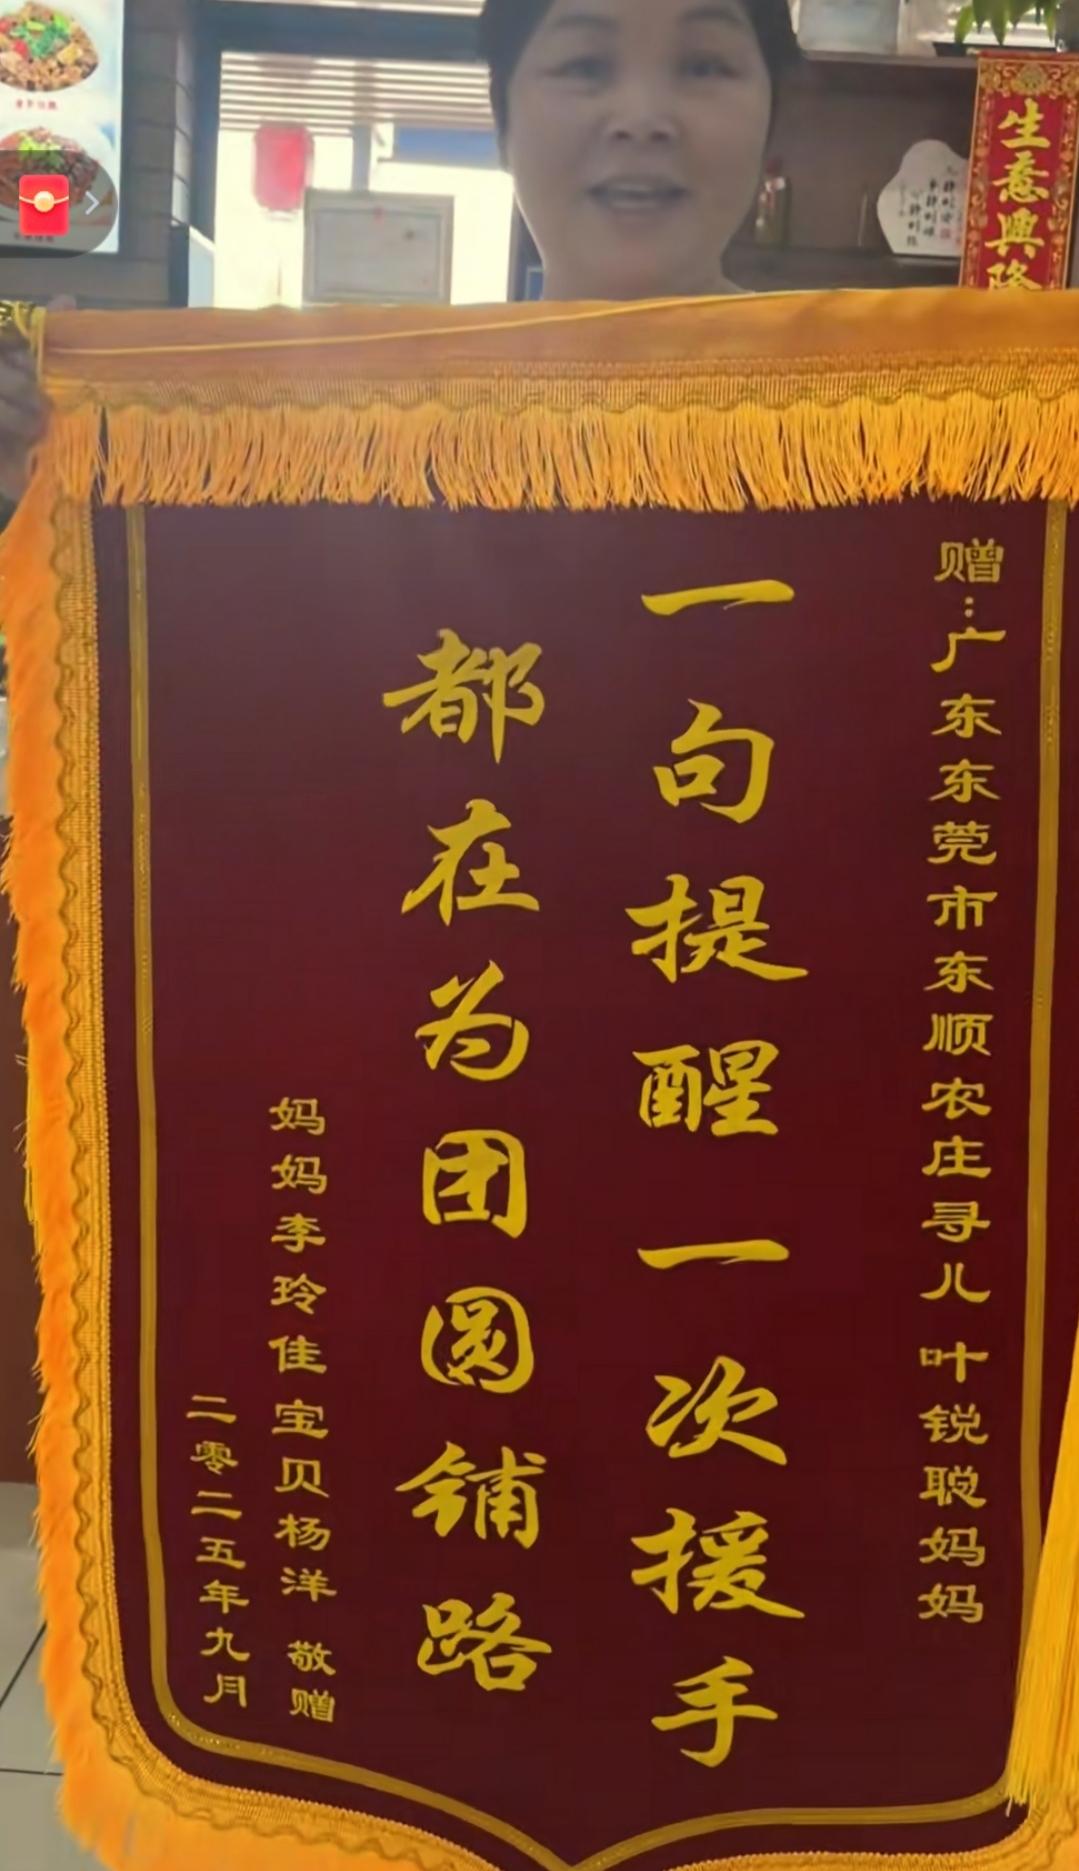 生意興隆
赠：广东东莞市东顺农庄寻儿 叶锐聪妈妈
一句提醒一次援手
都在为团圆铺路
妈妈李玲佳宝贝杨洋 敬赠
二零二五年九月